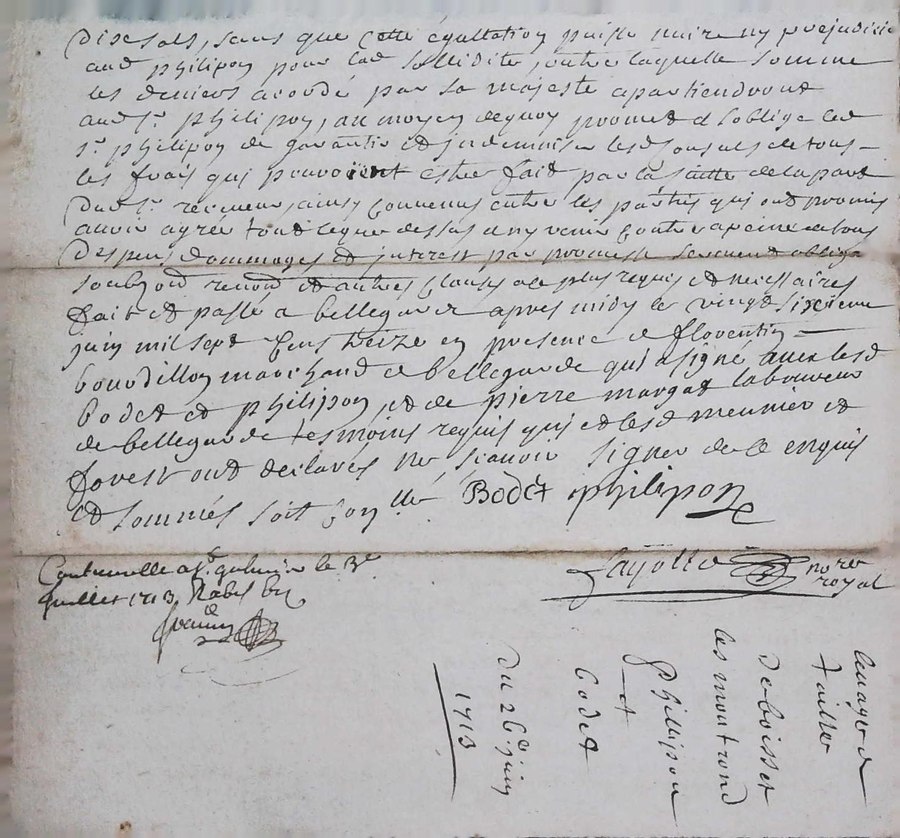 Dix sols, sans que cette égallation puisse nuire ny prejudicier
aud philipon pour lad sollidité, outre laquelle somme
les deniers acordé par sa majesté apartiendront
aud sr philipon, au moyen dequoy promet et soblige led
sr philipon de garantir et indemniser lesd consuls de tous
les frais qui pouroient estre fait par la suitte de la part
dud sr receveur, ainsy convenus entre les parties qui ont promis
avoir agreé tout ce que dessus a ny venir contre a peine de tous
despens dommages et interest par promesse serment oblige
soubzon renon et autres clauses de plus requis et necessaires
fait et passé a bellegarde apres midy le vingt sixieme
juin mil sept cens treize en presence de florentin
bourdillon marchand de bellegarde qui a signé avec lesd
bodet et philipon, et de pierre margat laboureur
de bellegarde tesmoins requis qui et lesd meunier et
forest ont declarés ne scavoir signer de ce enquis
et sommés soit con lle Bodet philipon
Contrerolle a st le 3e
juillet 1713
fayolle nore
royal
de
tailles
de boisset
les montrond
phillipon
et
bodet
du 26e juin
1713